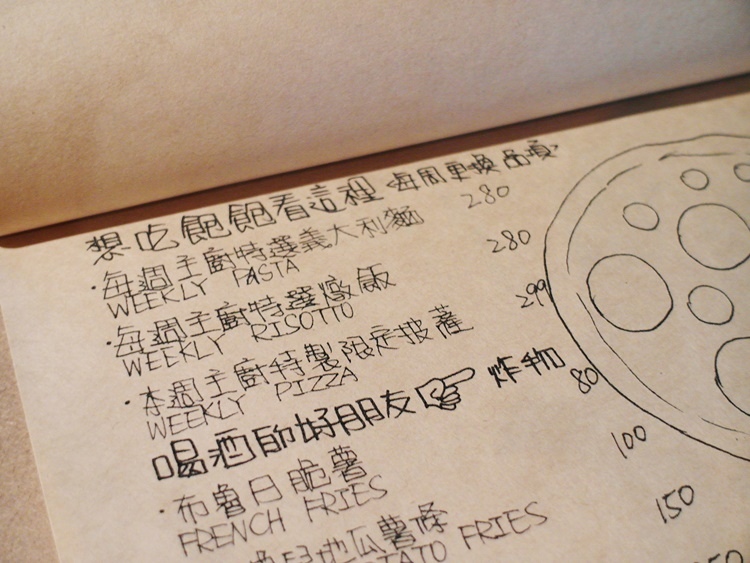 想吃飽飽看這裡 每周更換品項
每週主廚特選義大利麵 280
WEEKLY PASTA
每週主廚特選燉飯 280
WEEKLY RISOTTO
本週主廚特製限定披薩 299
WEEKLY PIZZA
喝酒的好朋友 炸物
80
布魯日脆薯 100
FRENCH FRIES
地瓜薯條 150
FRIES